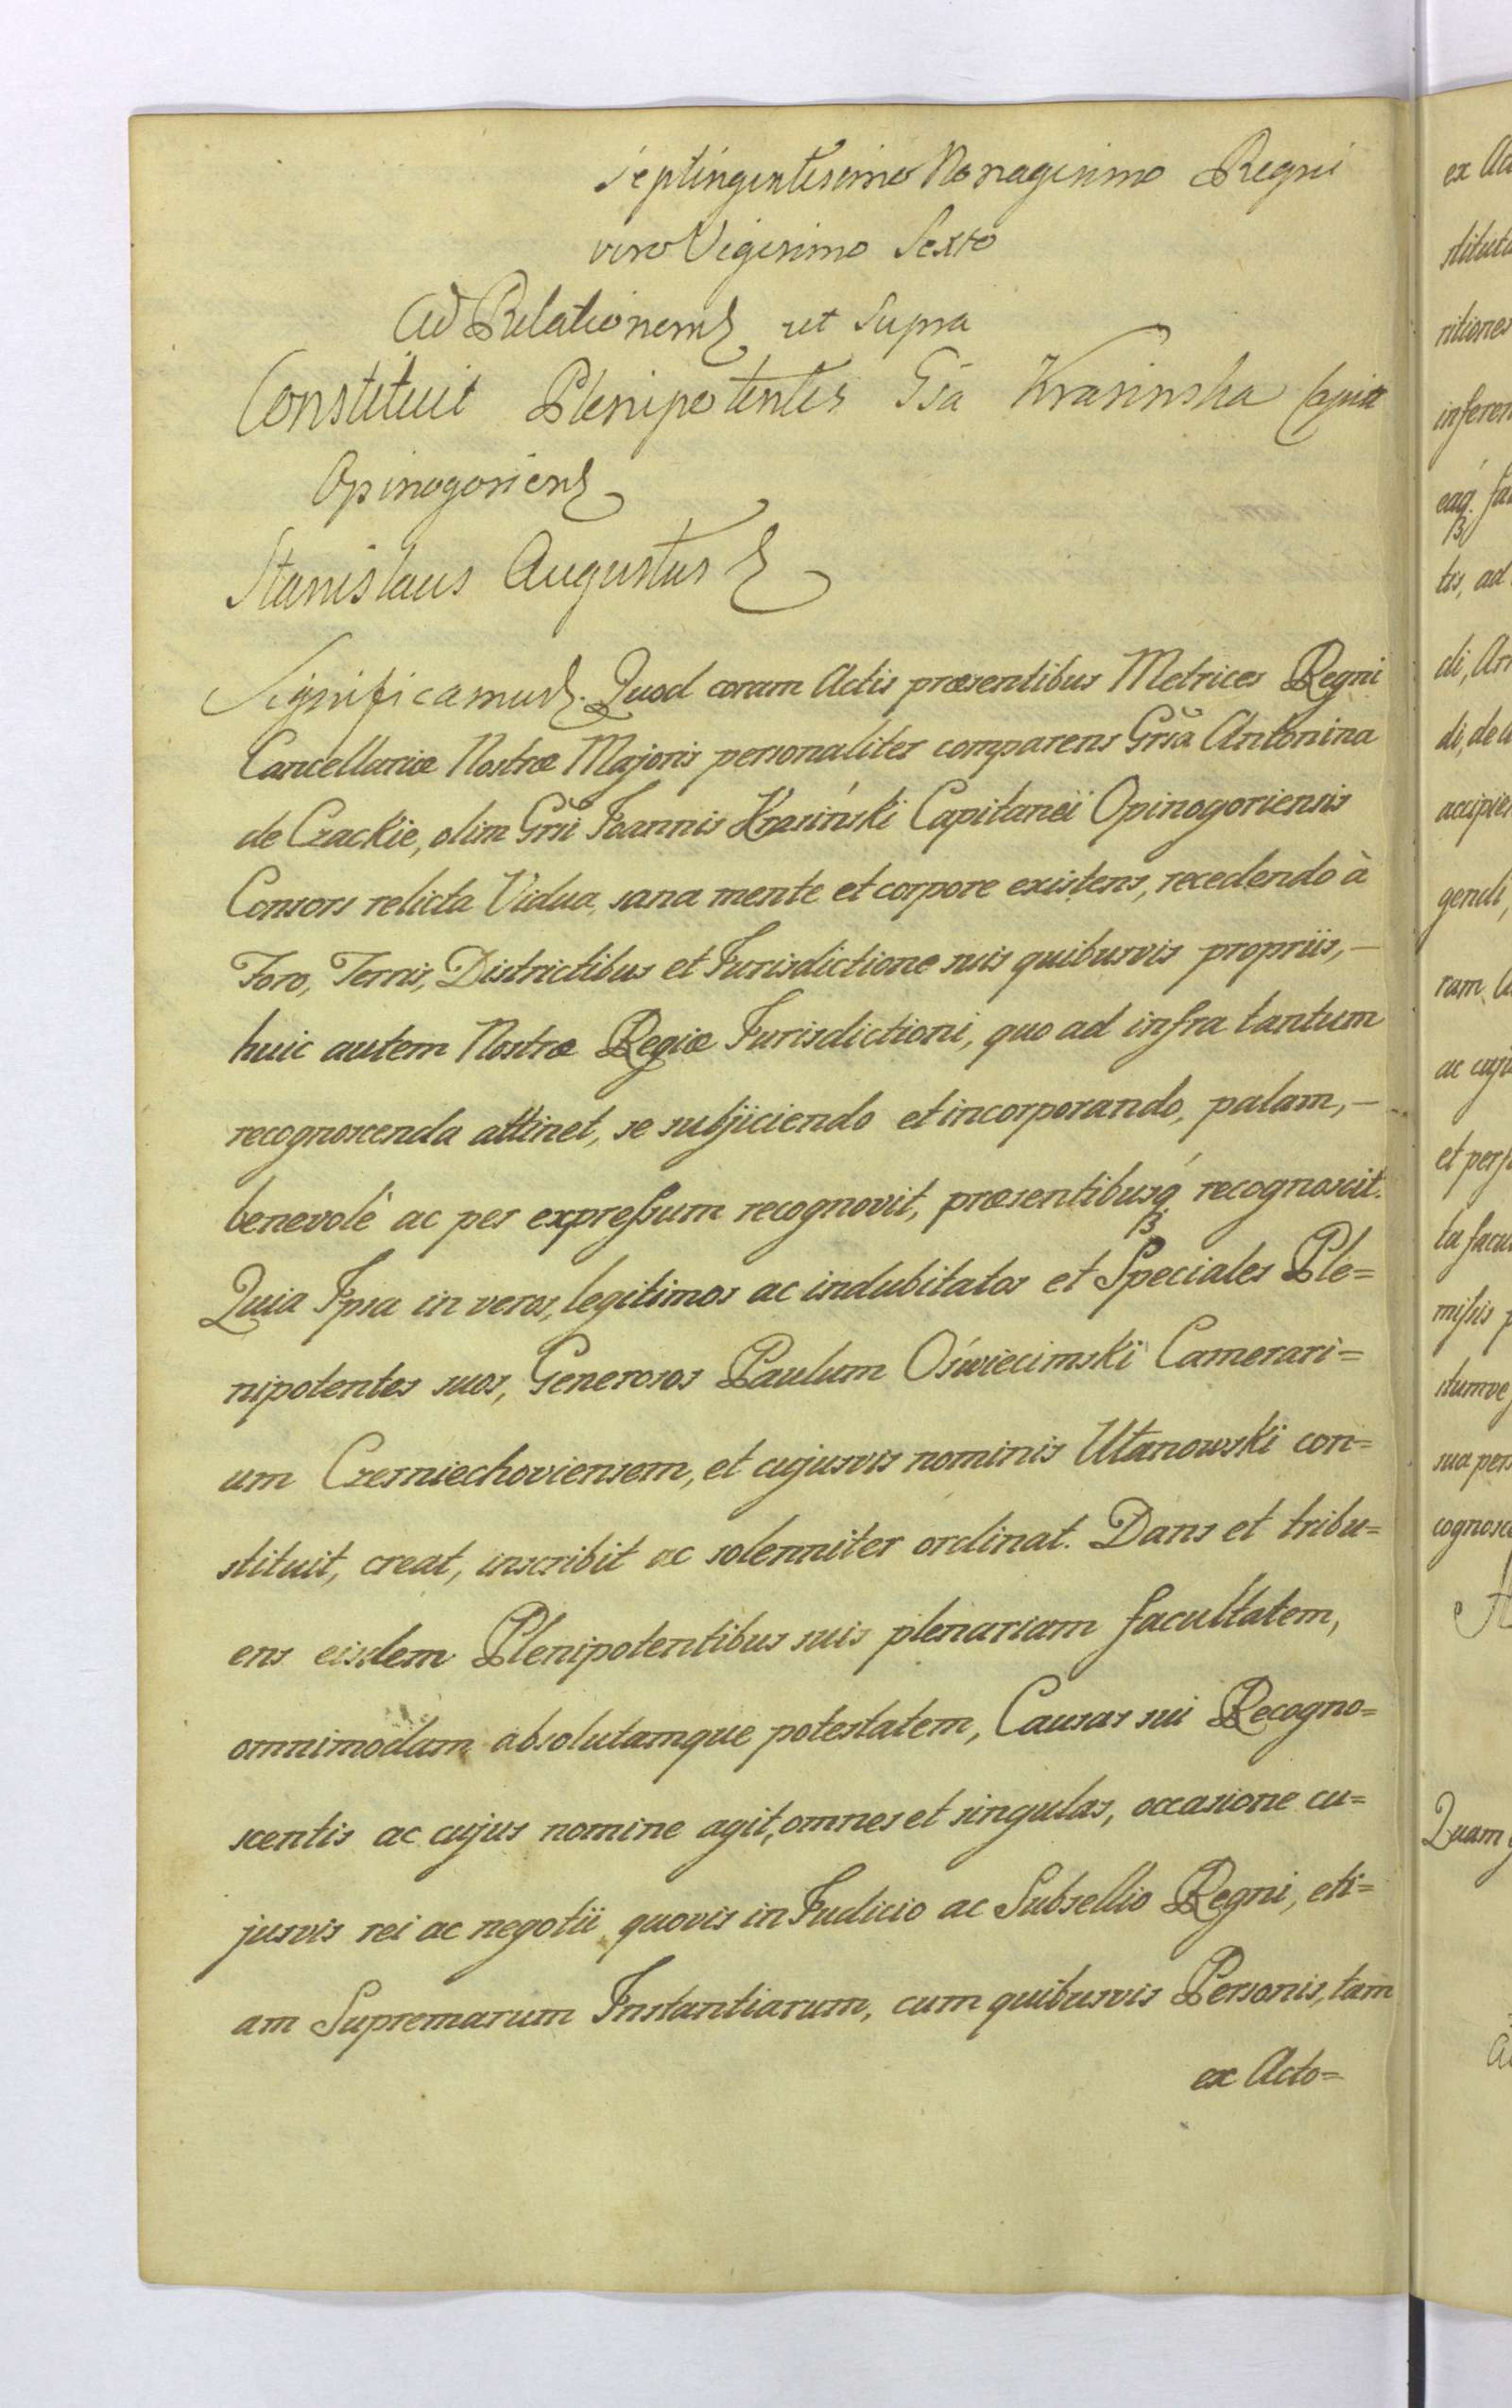 septingentesimo Nonagesimo Regni
vero Vigesimo Sexto
Ad Relationem ut Supra
Constituit Plenipotentes Gsa Krasinska Capitt
Opinogoriens
Stanislaus Augustus
Significamus. Quod coram Actis præsentibus Metrices Regni
Cancellariæ Nostræ Majoris personaliter comparens Grsa Antonina
de Czackie, olim Grsi Joannis Krasiński Capitanei Opinogoriensis
Consors relicta Vidua, sana mente et corpore existens, recedendo à
Foro, Terris, Districtibus et Jurisdictione suis quibusvis propriis,—
huic autem Nostræ Regiæ Jurisdictioni, quo ad infra tantum
recognoscenda attinet, se subjiciendo et incorporando, palam,—
benevolè ac per expressum recognovit, præsentibusq́ recognoscit.
Quia Ipsa in veros, legitimos ac indubitatos et Speciales Ple=
nipotentes suos, Generosos Paulum Oświecimski Camerari=
um Czerniechoviensem, et cujusvis nominis Ułanowski con=
stituit, creat, inscribit ac solenniter ordinat. Dans et tribu=
ens eisdem Plenipotentibus suis plenariam facultatem,
omnimodam absolutamque potestatem, Causas sui Recogno=
scentis ac cujus nomine agit, omnes et singulas, occasione cu=
jusvis rei ac negotii quovis in Judicio ac Subsellio Regni, eti=
am Supremarum Instantiarum, cum quibusvis Personis, tam
ex Acto=